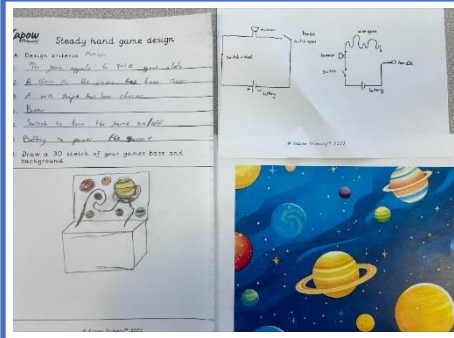 Kapow
Primary
Steady hand game design
Design criteria
The game appeals to
A theme for the game has been chosen
A wire shape has been chosen
Switch to turn the game on/off
Battery to power the game
Draw a 3D sketch of your games base and
background
© Kapow Primary™ 2022
buzzer
handle
switch closed
battery
wire game
buzzer
switch
handle
battery
© Kapow Primary™ 2022